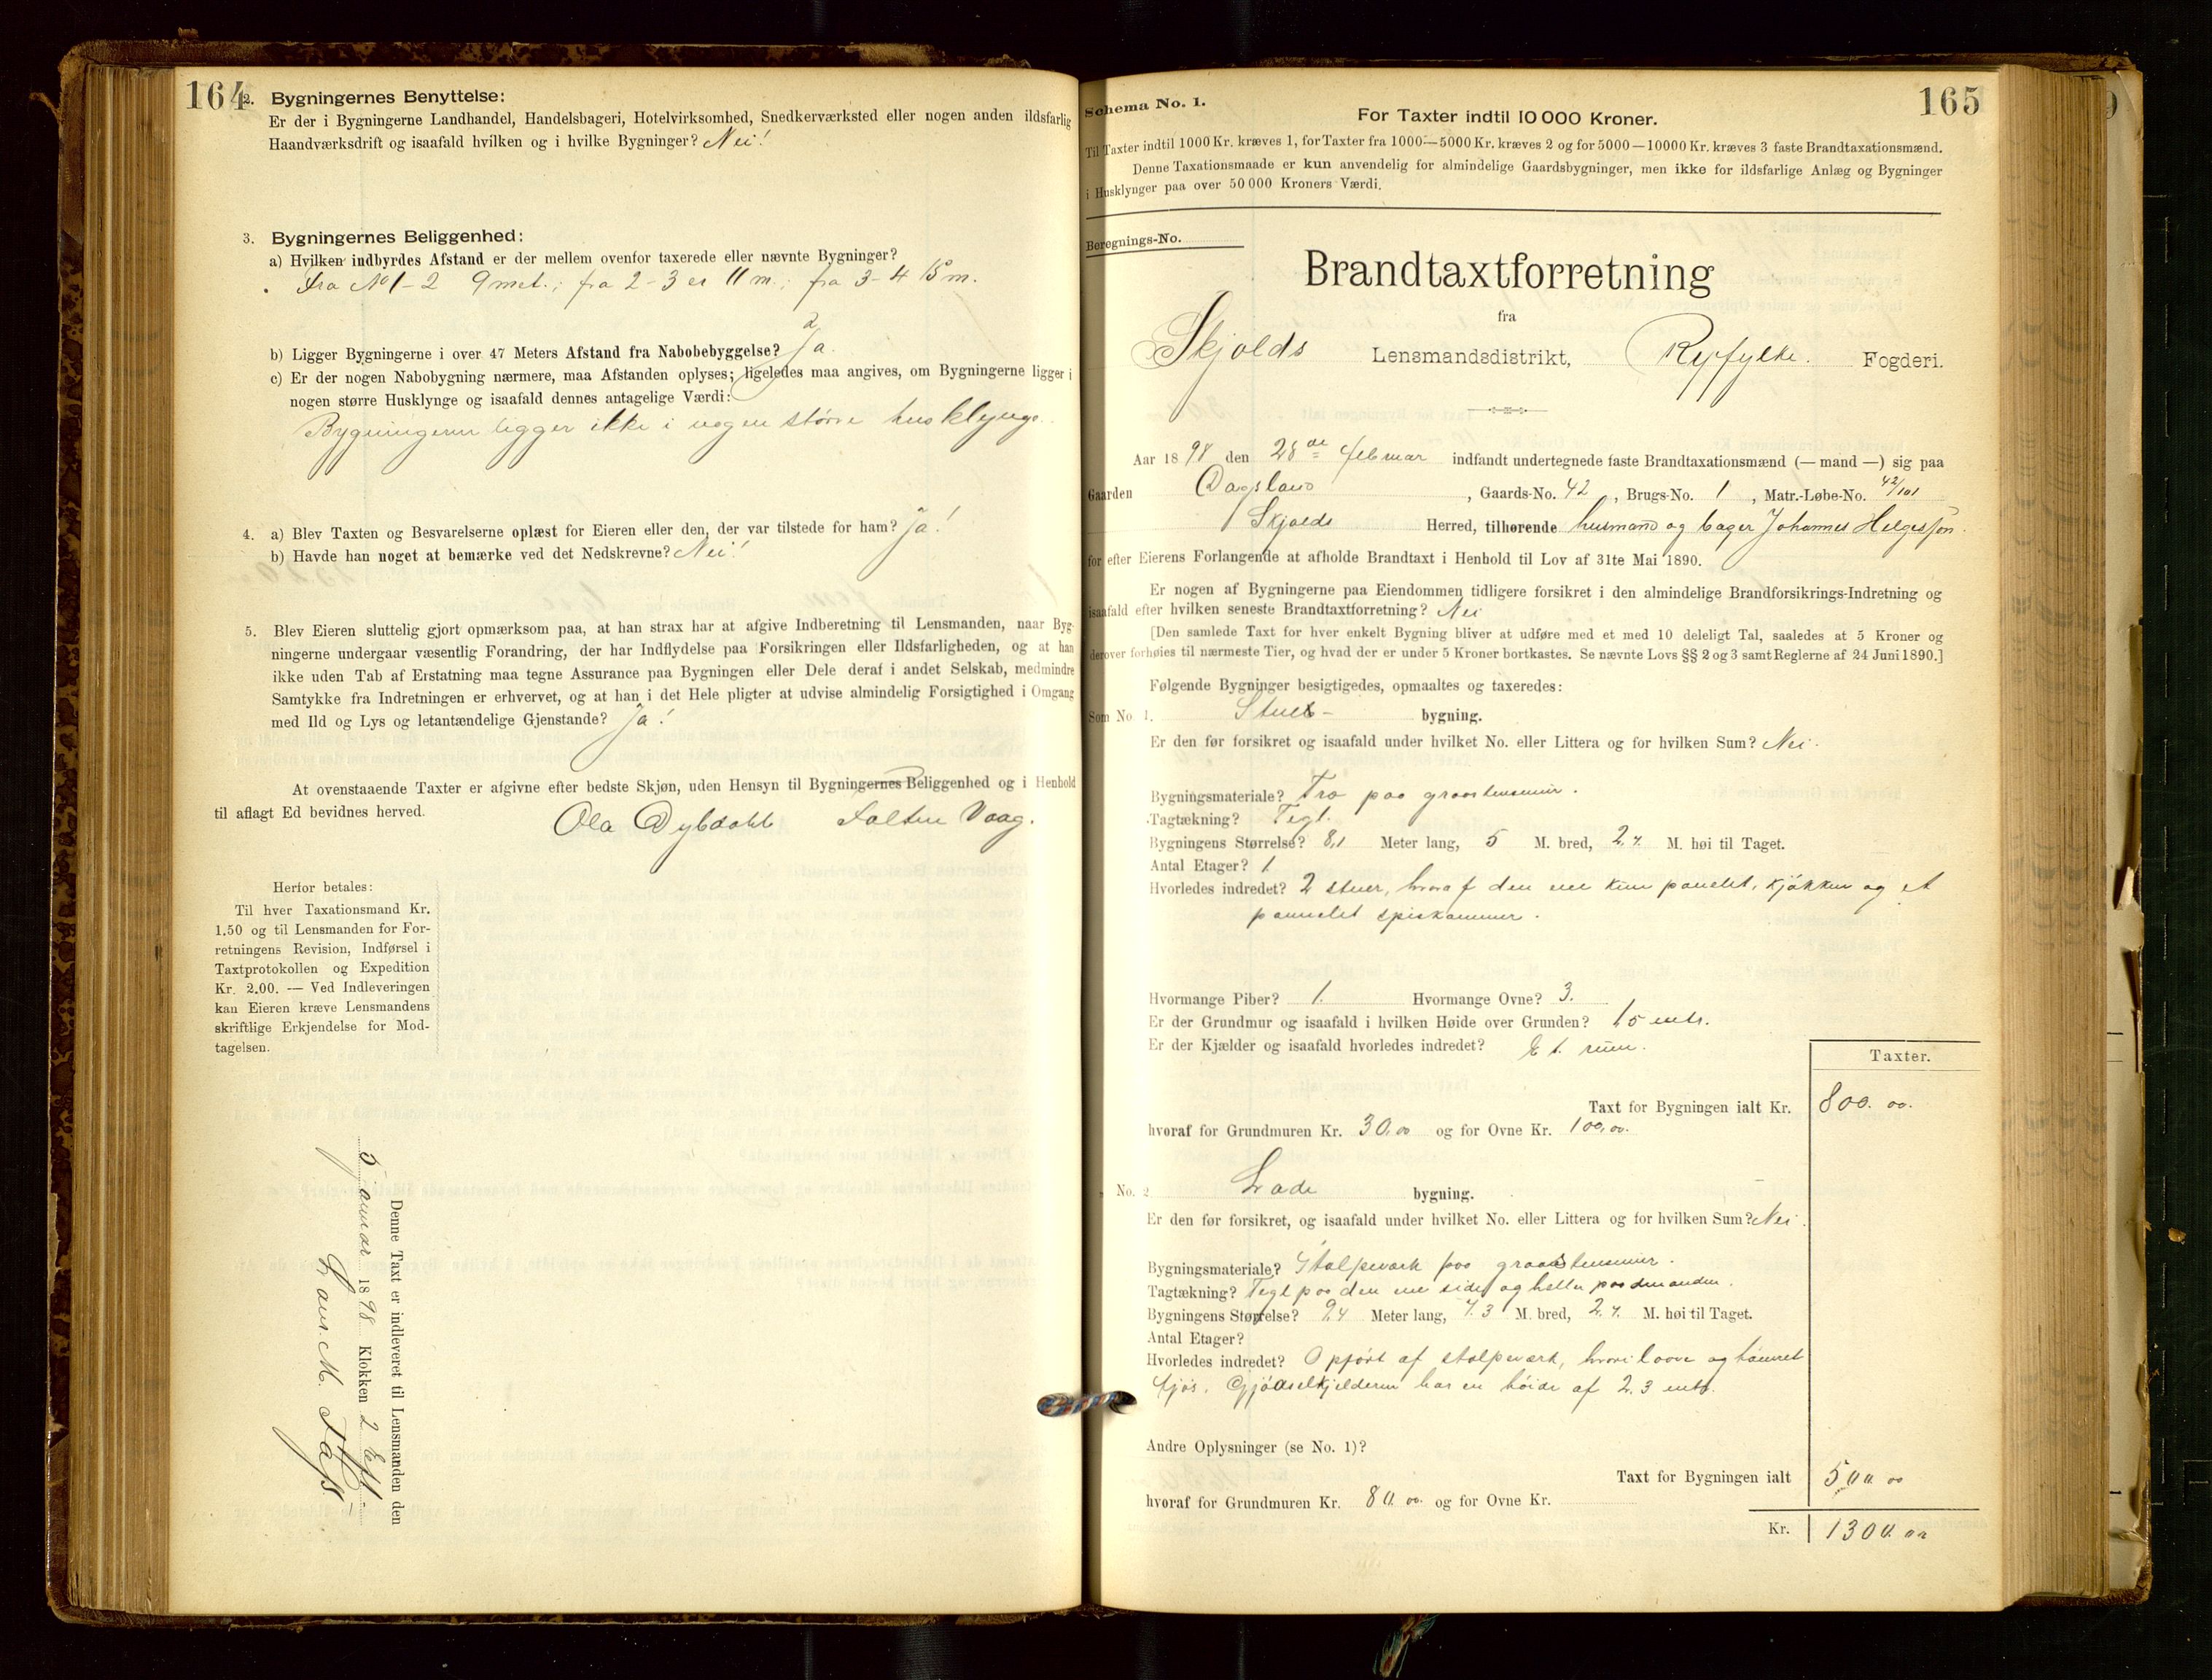 164
2. Bygningernes Benyttelse:
Er der i Bygningerne Landhandel, Handelsbageri, Hotelvirksomhed, Snedkerværksted eller nogen anden ildsfarlig
Haandværksdrift og isaafald hvilken og i hvilke Bygninger? Nei!
3. Bygningernes Beliggenhed:
a) Hvilken indbyrdes Afstand er der mellem ovenfor taxerede eller nævnte Bygninger?
Fra No 1-2 9 met.; fra 2-3 er 11 m.; fra 3-4 15 m.
b) Ligger Bygningerne i over 47 Meters Afstand fra Nabobebyggelse? Ja
c) Er der nogen Nabobygning nærmere, maa Afstanden oplyses; ligeledes maa angives, om Bygningerne ligger i
nogen større Husklynge og isaafald dennes antagelige Værdi:
Bygningerne ligger ikke i nogen større husklynge.
4. a) Blev Taxten og Besvarelserne oplæst for Eieren eller den, der var tilstede for ham? Ja!
b) Havde han noget at bemærke ved det Nedskrevne? Nei!
5. Blev Eieren sluttelig gjort opmærksom paa, at han strax har at afgive Indberetning til Lensmanden, naar Byg-
ningerne undergaar væsentlig Forandring, der har Indflydelse paa Forsikringen eller Ildsfarligheden, og at han
ikke uden Tab af Erstatning maa tegne Assurance paa Bygningen eller Dele deraf i andet Selskab, medmindre
Samtykke fra Indretningen er erhvervet, og at han i det Hele pligter at udvise almindelig Forsigtighed i Omgang
med Ild og Lys og letantændelige Gjenstande? Ja!
At ovenstaaende Taxter er afgivne efter bedste Skjøn, uden Hensyn til Bygningernes Beliggenhed og i Henhold
til aflagt Ed bevidnes herved.
Ola Dybdahl Salten Vaag.
Herfor betales:
Til hver Taxationsmand Kr.
1.50 og til Lensmanden for For-
retningens Revision, Indførsel i
Taxtprotokollen og Expedition
Kr. 2.00. — Ved Indleveringen
kan Eieren kræve Lensmandens
skriftlige Erkjendelse for Mod-
tagelsen.
Denne Taxt er indleveret til Lensmanden den
5 januar 1898 Klokken 2 Eft.
165
Schema No. 1.
For Taxter indtil 10 000 Kroner.
Til Taxter indtil 1000 Kr. kræves 1, for Taxter fra 1000—5000 Kr. kræves 2 og for 5000—10000 Kr. kræves 3 faste Brandtaxationsmænd.
Denne Taxationsmaade er kun anvendelig for almindelige Gaardsbygninger, men ikke for ildsfarlige Anlæg og Bygninger
i Husklynger paa over 50 000 Kroners Værdi.
Beregnings-No.
Brandtaxtforretning
fra
Skjolds Lensmandsdistrikt, Ryfylke. Fogderi.
Aar 1898 den 28de februar indfandt undertegnede faste Brandtaxationsmænd (— mand —) sig paa
Gaarden Dagsland, Gaards-No. 42, Brugs-No. 1, Matr.-Løbe-No. 42/101
Skjolds Herred, tilhørende husmand og bager Johannes Helgessøn
for efter Eierens Forlangende at afholde Brandtaxt i Henhold til Lov af 31te Mai 1890.
Er nogen af Bygningerne paa Eiendommen tidligere forsikret i den almindelige Brandforsikrings-Indretning og
isaafald efter hvilken seneste Brandtaxtforretning? Nei
[Den samlede Taxt for hver enkelt Bygning bliver at udføre med et med 10 deleligt Tal, saaledes at 5 Kroner og
derover forhøies til nærmeste Tier, og hvad der er under 5 Kroner bortkastes. Se nævnte Lovs §§ 2 og 3 samt Reglerne af 24 Juni 1890.]
Følgende Bygninger besigtigedes, opmaaltes og taxeredes:
Som No 1. Stue- bygning.
Er den før forsikret og isaafald under hvilket No. eller Littera og for hvilken Sum? Nei.
Bygningsmateriale? Træ paa graastensmur.
Tagtækning? Tegl.
Bygningens Størrelse? 8,1 Meter lang, 5 M. bred, 2.7. M. høi til Taget.
Antal Etager? 1
Hvorledes indredet? 2 stuer, hvoraf den ene kun panelet, kjøkken og et
pannelet spiskammer.
Hvormange Piber? 1. Hvormange Ovne? 3.
Er der Grundmur og isaafald i hvilken Høide over Grunden? 1.5 mtr.
Er der Kjælder og isaafald hvorledes indredet? Et rum.
Taxter.
Taxt for Bygningen ialt Kr. 800.00.
hvoraf for Grundmuren Kr. 30.00 og for Ovne Kr. 100.00.
No. 2 Lade bygning.
Er den før forsikret, og isaafald under hvilket No. eller Littera og for hvilken Sum? Nei.
Bygningsmateriale? Stolpeværk paa graastensmur.
Tagtækning? Tegl paa den ene side og heller paa den anden.
Bygningens Størrelse? 9,4 Meter lang, 7.3 M. bred, 2.7. M. høi til Taget.
Antal Etager?
Hvorledes indredet? Opført af stolpeværk, hvori loove og tømret
fjøs. Gjødselkjelderen har en høide af 2.3 mtr.
Andre Oplysninger (se No. 1)?
Taxt for Bygningen ialt 500 00
hvoraf for Grundmuren Kr. 80.00. og for Ovne Kr.
Kr. 1300.00